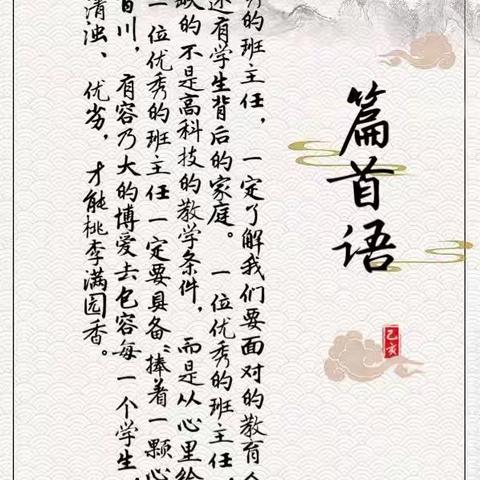 篇首语
己亥
秀的班主任，一定了解我们要面对的教育
还有学生背后的家庭。一位优秀的班主任，
缺的不是高科技的教学条件，而是从心里给
一位优秀的班主任一定要具备“捧着一颗心
百川，有容乃大的博爱去包容每一个学生，
清浊、优劣，才能桃李满园香。